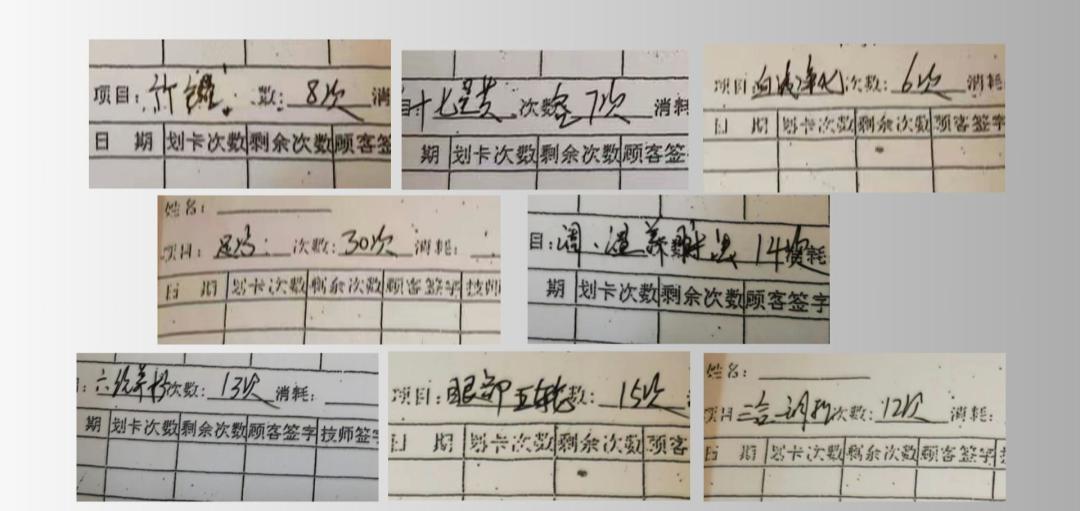 项目: 数: 8次 消
日 期 划卡次数 剩余次数 顾客签
次数 7次 消耗
期 划卡次数 剩余次数 顾客签
项目: 次数: 6次 消耗
日 期 划卡次数 剩余次数 顾客签字
姓名:
项目: 次数: 30次 消耗:
日 期 划卡次数 剩余次数 顾客签字 技师
目: 调、温养 14次 耗
期 划卡次数 剩余次数 顾客签字
: 六 次数: 13次 消耗:
期 划卡次数 剩余次数 顾客签字 技师签字
项目: 眼部 数: 15次
日 期 划卡次数 剩余次数 顾客
姓名:
项目: 调 次数: 12次 消耗:
日 期 划卡次数 剩余次数 顾客签字